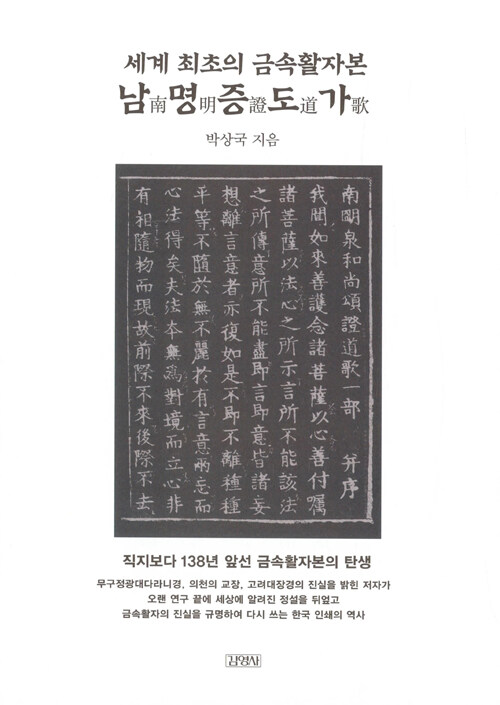 세계 최초의 금속활자본
남南명明증證도道가歌
박상국 지음
南明泉和尚頌證道歌一部 并序
我聞如來善護念諸菩薩以心善付囑
諸菩薩以法心之所示言所不能該法
之所傳意所不能盡即言即意皆諸妄
想離言意者亦復如是不即不離種種
平等不隨於無不麗於有言意兩忘而
心法得矣夫法本無為對境而立心非
有相隨物而現故前際不來後際不去
직지보다 138년 앞선 금속활자본의 탄생
무구정광대다라니경, 의천의 교장, 고려대장경의 진실을 밝힌 저자가
오랜 연구 끝에 세상에 알려진 정설을 뒤엎고
금속활자의 진실을 규명하여 다시 쓰는 한국 인쇄의 역사
김영사